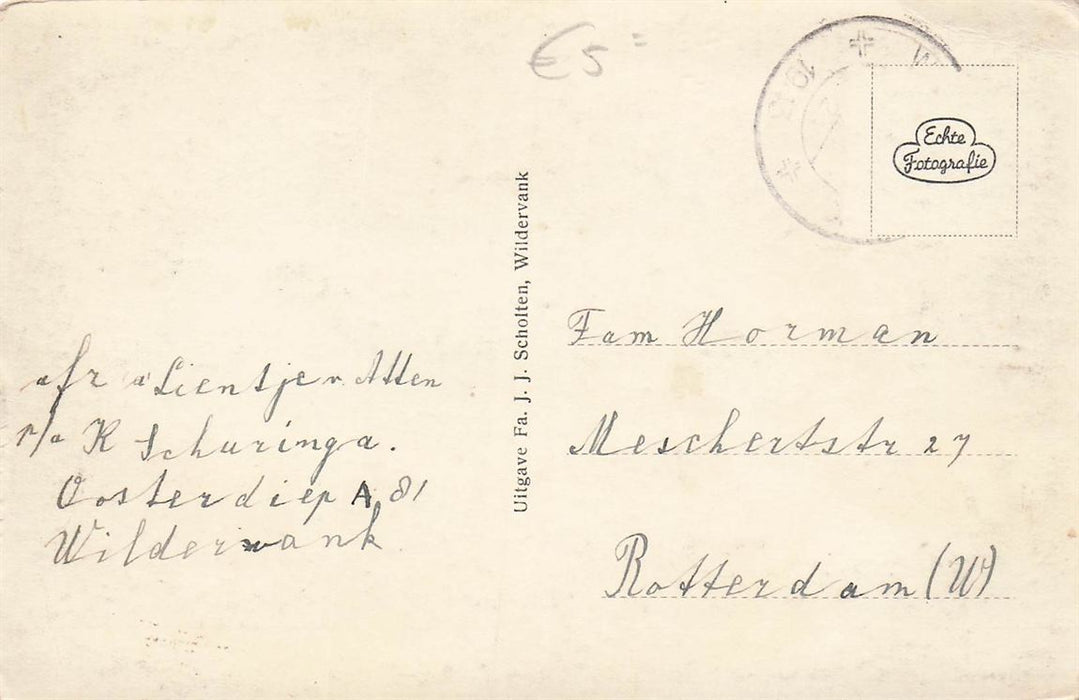 €5=
Echte
Fotografie
Uitgave Fa. J. J. Scholten, Wildervank
afz Lientje v Atten
p/a K Schuringa.
Oosterdiep A 81
Wildervank
Fam Horman
Meschertstr 27
Rotterdam (W)